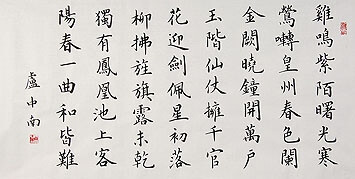 雞鳴紫陌曙光寒
鶯囀皇州春色闌
金闕曉鐘開萬戶
玉階仙仗擁千官
花迎劍佩星初落
柳拂旌旗露未乾
獨有鳳凰池上客
陽春一曲和皆難
盧中南